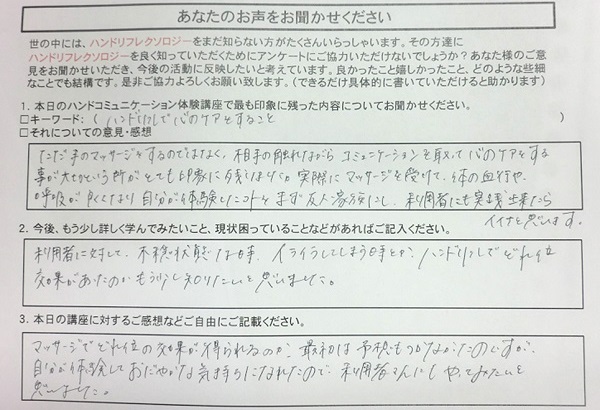 あなたのお声をお聞かせください
世の中には、ハンドリフレクソロジーをまだ知らない方がたくさんいらっしゃいます。その方達に
ハンドリフレクソロジーを良く知っていただくためにアンケートにご協力いただけないでしょうか？あなた様のご意
見をお聞かせいただき、今後の活動に反映したいと考えています。良かったこと嬉しかったこと、どのような些細
なことでも結構です。是非ご協力よろしくお願い致します。（できるだけ具体的に書いていただけると助かります）
1. 本日のハンドコミュニケーション体験講座で最も印象に残った内容についてお聞かせください。
□キーワード：（ハンドリフレで心のケアをすること ）
□それについての意見・感想
ただ手のマッサージをするのではなく、相手の触れながら コミュニケーションを取って心のケアをする
事が大切という所がとても印象に残りました。実際にマッサージを受けて、体の血行や、
呼吸が良くなり 自分が体験したコトを まず友人、家族にし、利用者にも実践出来たら
イイナと思います。
2. 今後、もう少し詳しく学んでみたいこと、現状困っていることなどがあればご記入ください。
利用者に対して、不穏状態な時、イライラしてしまう時とか、ハンドリフレでどれ位
効果があるのか もう少し知りたいと思いました。
3. 本日の講座に対するご感想などご自由にご記載ください。
マッサージでどれ位の効果が得られるのか、最初は予想もつかなかったのですが、
自分が体験して おだやかな気持ちになれたので、利用者さんにも やってみたいと
思いました。